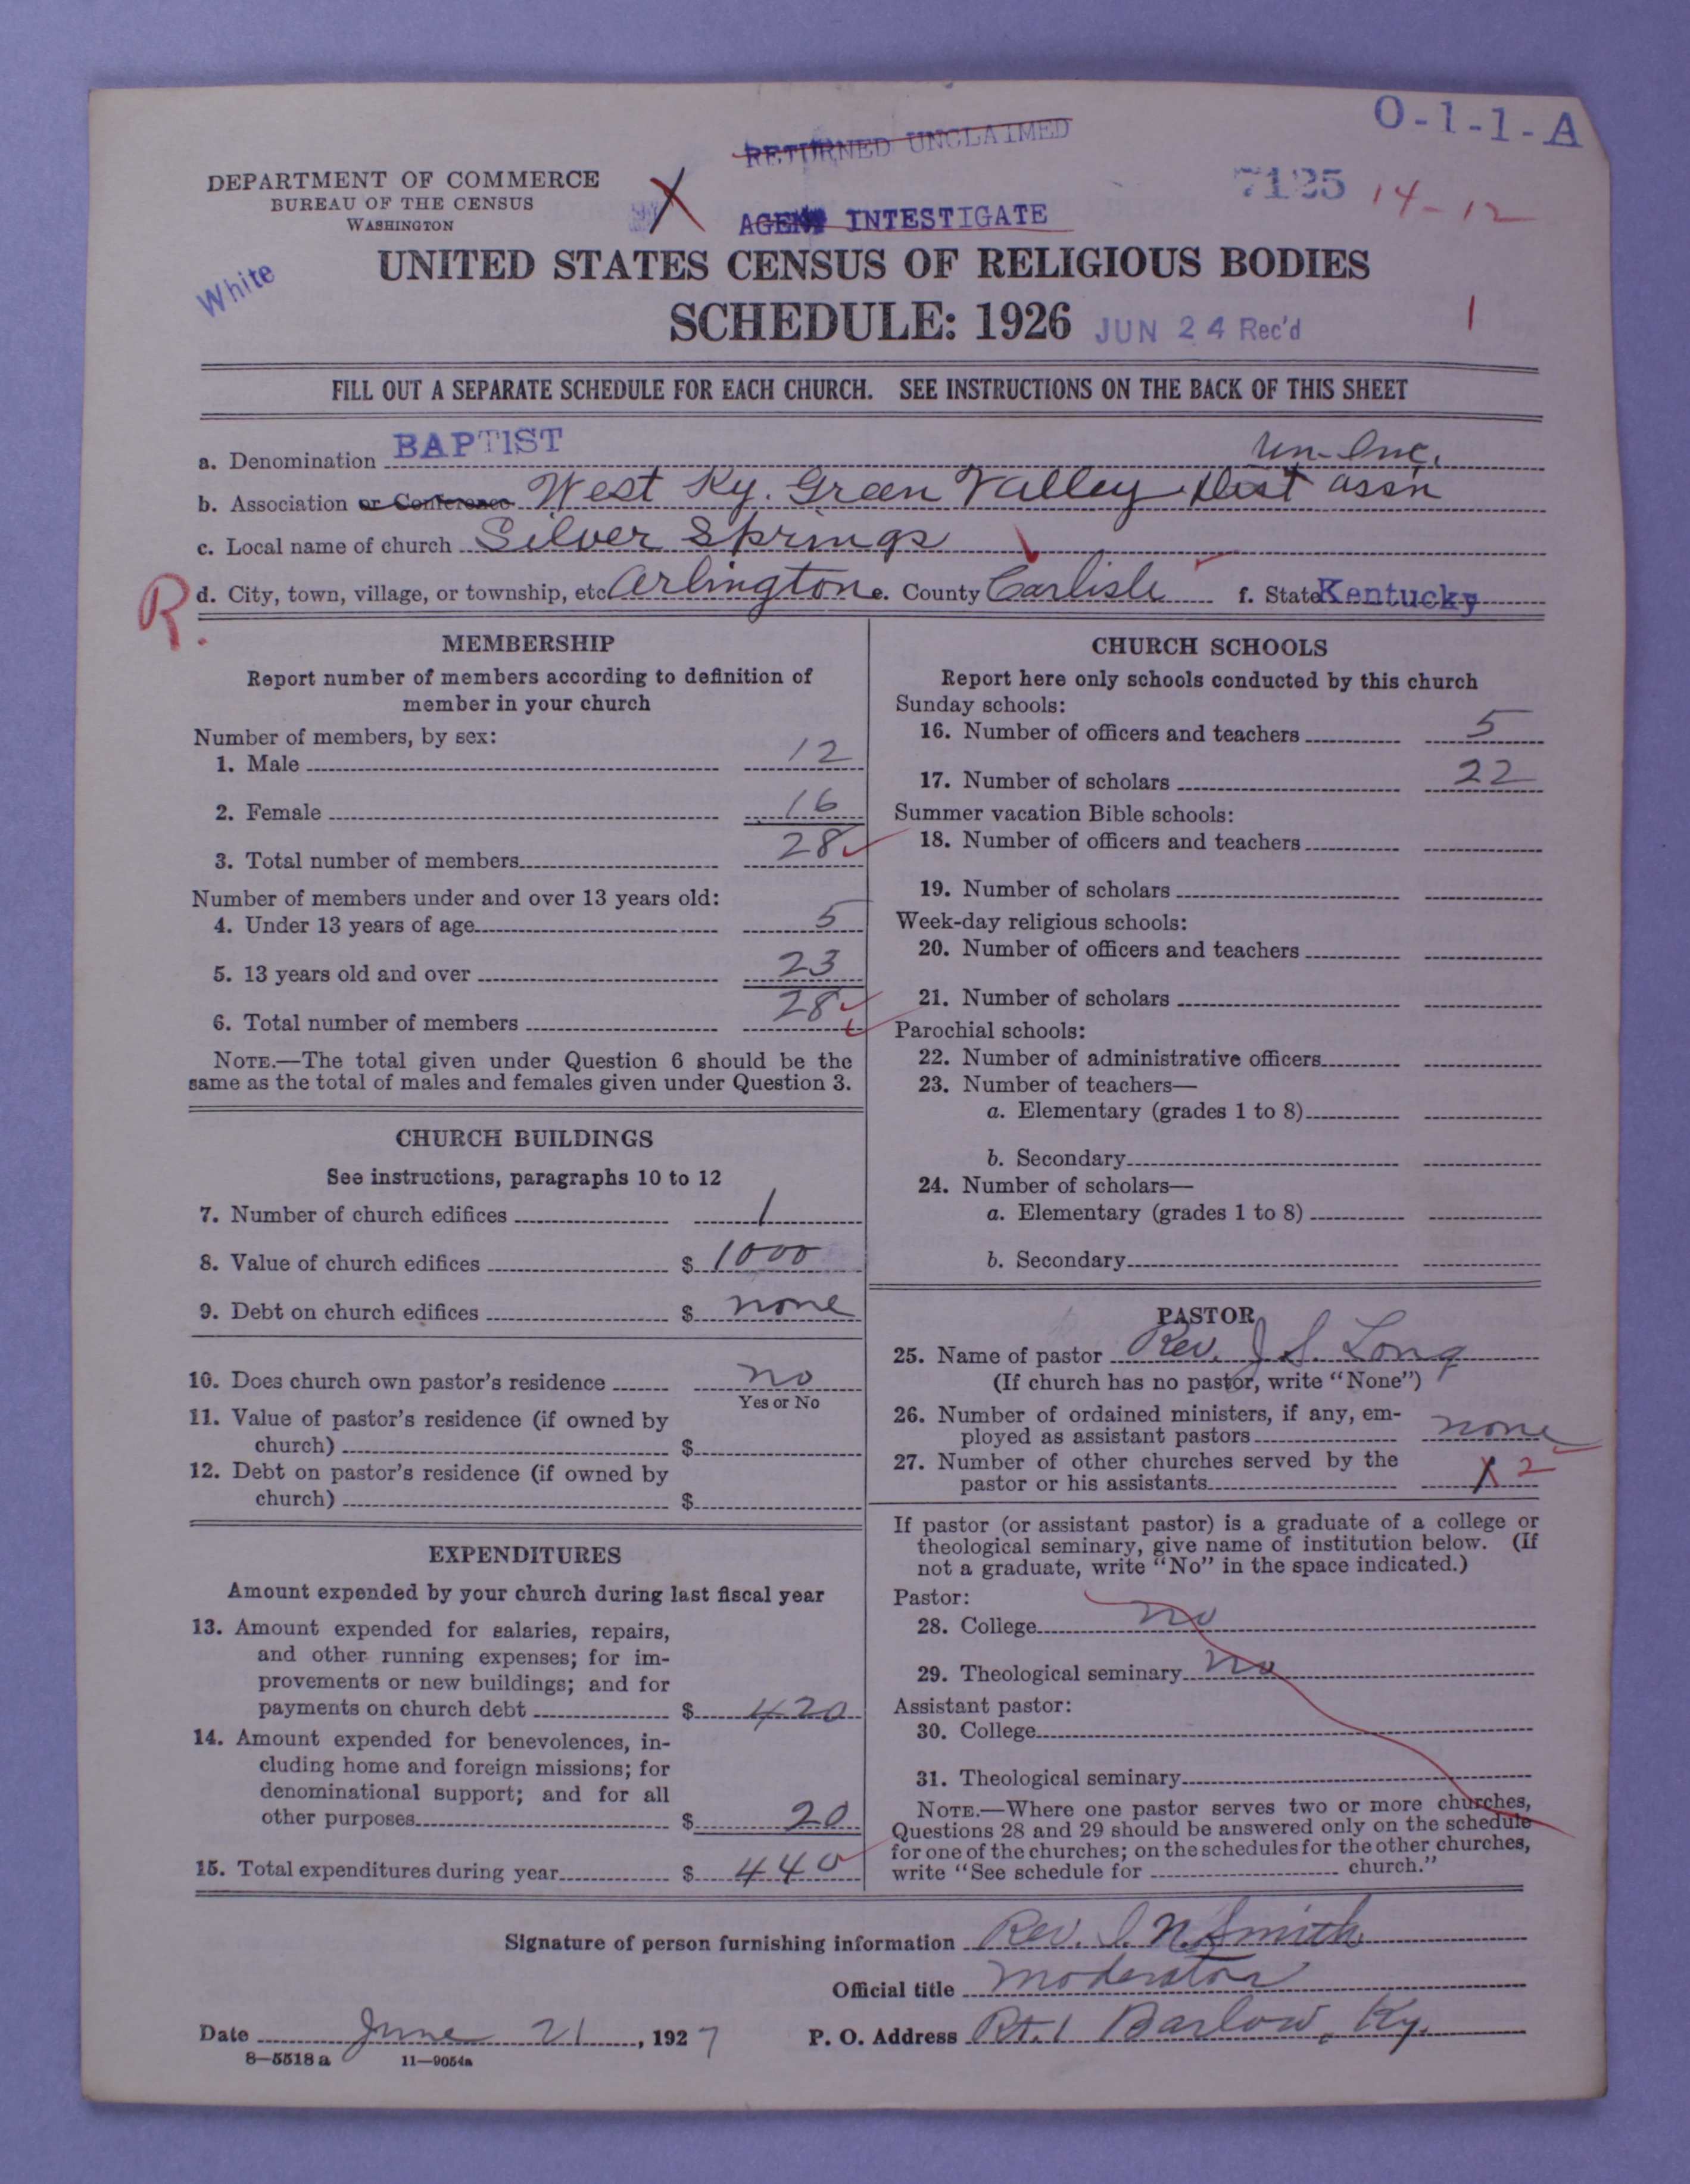 O-1-1-A
RETURNED UNCLAIMED
7125 14-12
DEPARTMENT OF COMMERCE
BUREAU OF THE CENSUS
WASHINGTON
X
AGENT INTESTIGATE
White
UNITED STATES CENSUS OF RELIGIOUS BODIES
SCHEDULE: 1926 JUN 24 Rec'd
1
FILL OUT A SEPARATE SCHEDULE FOR EACH CHURCH. SEE INSTRUCTIONS ON THE BACK OF THIS SHEET
a. Denomination BAPTIST Un-Inc.
b. Association or Conference West Ky. Green Valley Dist assn
c. Local name of church Silver Springs
R. d. City, town, village, or township, etc Arlington e. County Carlisle f. State Kentucky
MEMBERSHIP
Report number of members according to definition of
member in your church
Number of members, by sex:
1. Male 12
2. Female 16
3. Total number of members 28
Number of members under and over 13 years old:
4. Under 13 years of age 5
5. 13 years old and over 23
6. Total number of members 28
NOTE.—The total given under Question 6 should be the
same as the total of males and females given under Question 3.
CHURCH BUILDINGS
See instructions, paragraphs 10 to 12
7. Number of church edifices 1
8. Value of church edifices $ 1000
9. Debt on church edifices $ none
10. Does church own pastor's residence no
Yes or No
11. Value of pastor's residence (if owned by
church) $
12. Debt on pastor's residence (if owned by
church) $
EXPENDITURES
Amount expended by your church during last fiscal year
13. Amount expended for salaries, repairs,
and other running expenses; for im-
provements or new buildings; and for
payments on church debt $ 420
14. Amount expended for benevolences, in-
cluding home and foreign missions; for
denominational support; and for all
other purposes $ 20
15. Total expenditures during year $ 440
CHURCH SCHOOLS
Report here only schools conducted by this church
Sunday schools:
16. Number of officers and teachers 5
17. Number of scholars 22
Summer vacation Bible schools:
18. Number of officers and teachers
19. Number of scholars
Week-day religious schools:
20. Number of officers and teachers
21. Number of scholars
Parochial schools:
22. Number of administrative officers
23. Number of teachers—
a. Elementary (grades 1 to 8)
b. Secondary
24. Number of scholars—
a. Elementary (grades 1 to 8)
b. Secondary
PASTOR
25. Name of pastor Rev. J S. Long
(If church has no pastor, write "None")
26. Number of ordained ministers, if any, em-
ployed as assistant pastors none
27. Number of other churches served by the
pastor or his assistants 2
If pastor (or assistant pastor) is a graduate of a college or
theological seminary, give name of institution below. (If
not a graduate, write "No" in the space indicated.)
Pastor:
28. College no
29. Theological seminary no
Assistant pastor:
30. College
31. Theological seminary
NOTE.—Where one pastor serves two or more churches,
Questions 28 and 29 should be answered only on the schedule
for one of the churches; on the schedules for the other churches,
write "See schedule for church."
Signature of person furnishing information Rev. I. N. Smith
Official title moderator
Date June 21, 1927 P. O. Address Rt. 1 Barlow, Ky.
8-5518 a 11-9054a